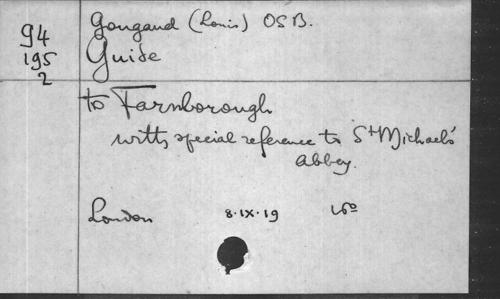 94
195
2
Gougaud (Louis) OSB.
Guide
to Farnborough
with special reference to St Michael's
Abbey.
London 8·IX·19 16o